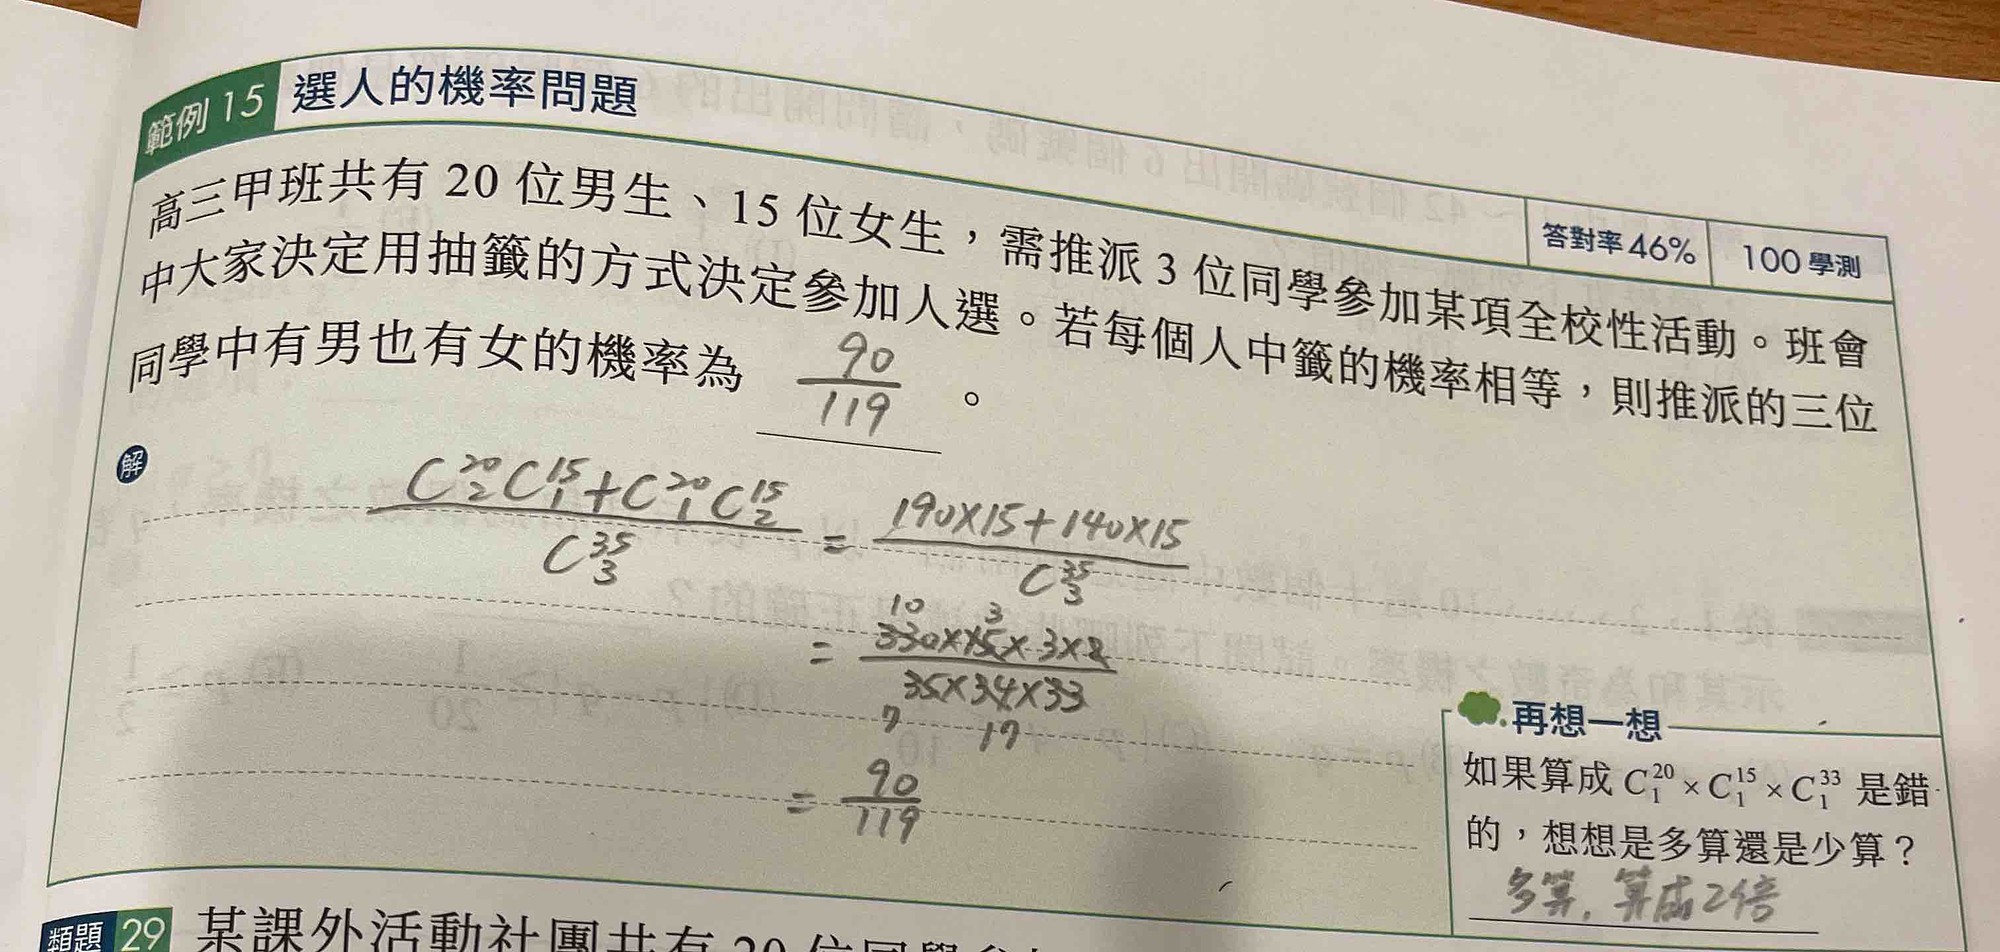 範例 15 選人的機率問題
答對率 46% 100 學測
高三甲班共有 20 位男生、15 位女生，需推派 3 位同學參加某項全校性活動。班會
中大家決定用抽籤的方式決定參加人選。若每個人中籤的機率相等，則推派的三位
同學中有男也有女的機率為 90/119 。
解
(C^20_2 C^15_1 + C^20_1 C^15_2) / C^35_3 = (190×15+140×15) / C^35_3
10 3
= (330×15×3×2) / (35×34×33)
7 17
= 90/119
再想一想
如果算成 C^20_1 × C^15_1 × C^33_1 是錯
的，想想是多算還是少算？
多算，算成2倍
類題 29 某課外活動社團共有 20 位同學